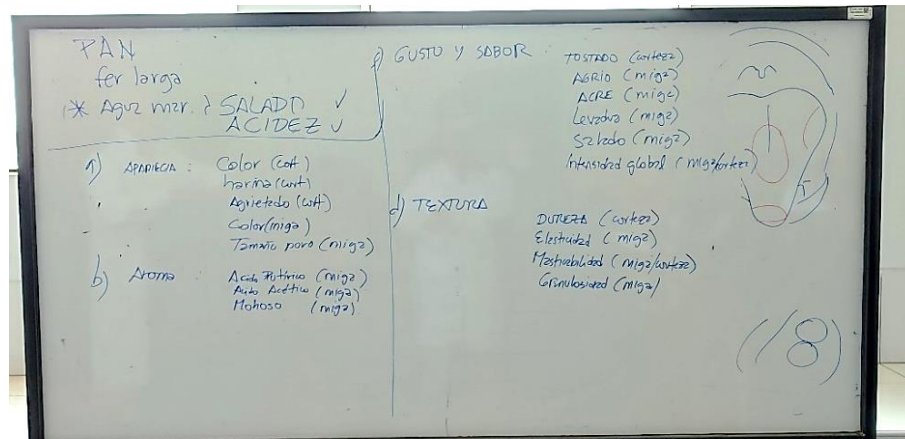 PAN
fer larga
* Agua mar. ? SALADO ✓
ACIDEZ ✓
a) APARIECIA : Color (cort)
harina (cort)
Agrietado (cort)
Color (miga)
Tamaño poro (miga)
b) Aroma : Acido Butírico (miga)
Acido Acético (miga)
Mohoso (miga)
c) GUSTO Y SABOR : TOSTADO (corteza)
AGRIO (miga)
ACRE (miga)
Levadura (miga)
Salado (miga)
Intensidad global (miga/corteza)
d) TEXTURA
DUREZA (corteza)
Elasticidad (miga)
Masticabilidad (miga/corteza)
Granulosidad (miga)
(18)